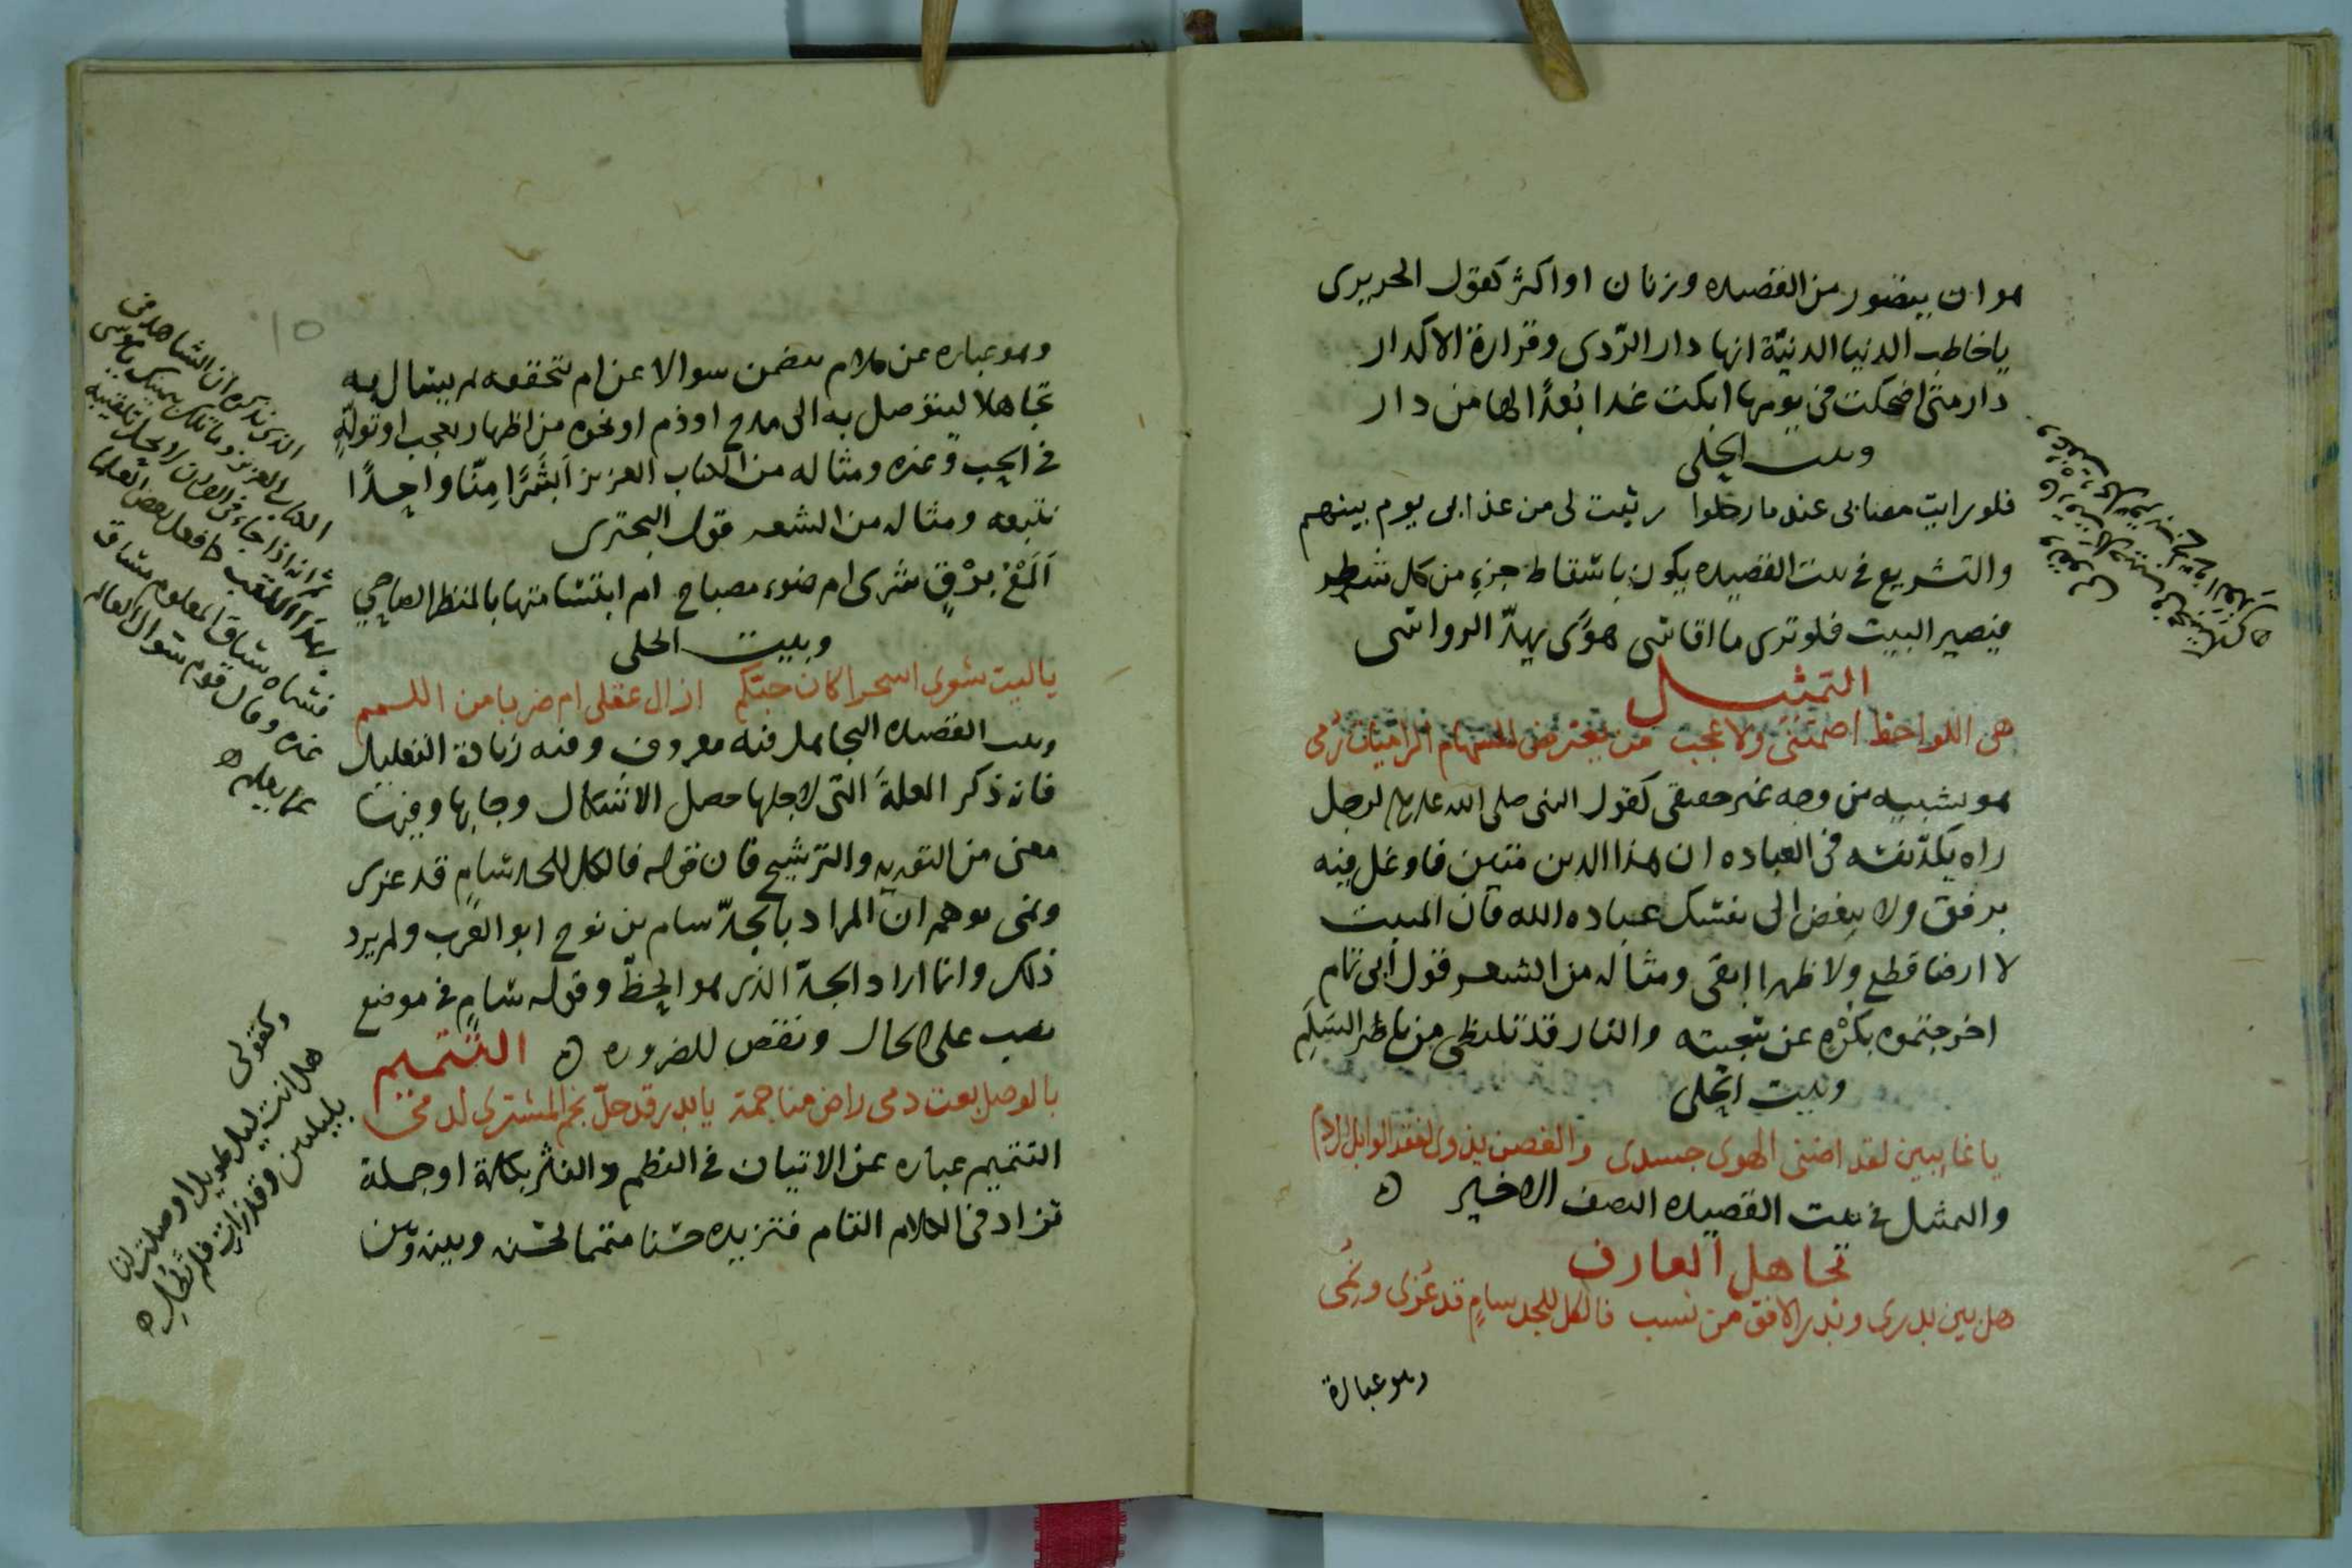 هو ان يتصور من القصيده وزنان او اكثر كقول الحريرى
يا خاطب الدنيا الدنيّة انها دار الرّدى وقرارة الاكدار
دار متى اضحكت فى يومها ابكت غدا بُعدًا لها من دار
وبيت الحلى
فلو رايت مصابى عند ما رحلوا رثيت لى من عذابى يوم بينهم
والتشريع فى بيت القصيده يكون باسقاط جزءٍ من كل شطر
فيصير البيت فلو ترى ما اقاسى هوًى يهدّ الرواسى
التمثيل
هى اللواحظ اصمتنى ولا عجب من يعترض للسهام الراميات رُمى
هو تشبيه من وجه غير حقيقى كقول النبى صلى الله عليه لرجل
راه يكدّ نفسه فى العباده ان هذا الدين متين فاوغل فيه
برفق ولا تبغض الى نفسك عباده الله فان المنبت
لا ارضا قطع ولا ظهرا ابقى ومثاله من الشعر قول ابى تمام
اخرجتموه بكُرْهٍ عن سجيته والنار قد تلتظى من ناظر السَلَمِ
وبيت الحلى
يا غايبين لقد اضنى الهوى جسدى والغصن يذوى لفقد الوابل الرذم
والتمثيل فى بيت القصيده النصف الاخير ٥
تجاهل العارف
هل بين بدرى وبدر الافق من نسب فالكل للجد سامٍ قد عُزى ونُمى
وهو عبارة
وهو عباره عن كلام يتضمن سوالا عن امر تحققه لم يسال به
تجاهلا ليتوصل به الى مدح او ذم او نحوه من اظهار تعجب او تولّهٍ
فى الحب وغيره ومثاله من الكتاب العزيز اَبَشَرًا مِنّا واحِدًا
نتبعه ومثاله من الشعر قول البحترى
اَلَمْعُ بَرْقٍ سَرى ام ضوء مصباح ام ابتسامتها بالمنظر الضاحى
وبيت الحلى
يا ليت شعرى اسحرا كان حبّكم ازال عقلى ام ضربا من اللمم
وبيت القصيده التجاهل فيه معروف وفيه زيادة التعليل
فانه ذكر العلة التى لاجلها حصل الاشكال وجا بها وفيها
معنى من التوريه والترشيح فان قوله فالكل للجد سامٍ قد عزى
ونمى يوهم ان المراد بالجدّ سام بن نوح ابو العرب ولم يرد
ذلك وانما اراد الجدّ الذى هو الحظّ وقوله سامٍ فى موضع
نصب على الحال ونقص للضروره ٥ التتميم
بالوصل بعت دمى راض مناجمة يا بدر قد حلّ نجم المشترى لدمى
التتميم عباره عن الاتيان فى النظم والنثر بكلمة او جملة
تزاد فى الكلام التام فتزيده حسنا متمما لحسنه وبينه وبين
الذى نذكره ان الشاهد فى
الكتاب العزيز وما تلك بيمينك يا موسى
ثم انه اذا جاء فى القران لا يحل تلقيبه
بهذا اللقب كما فعل بعض العلما
فسماه سياق المعلوم مساق
غيره وقال قوم سوال العالم
عما يعلم ٥
وكقولى
هل انت ليل طويل اوصلت لنا
بليلين وقد زارت فلم تطل ٥